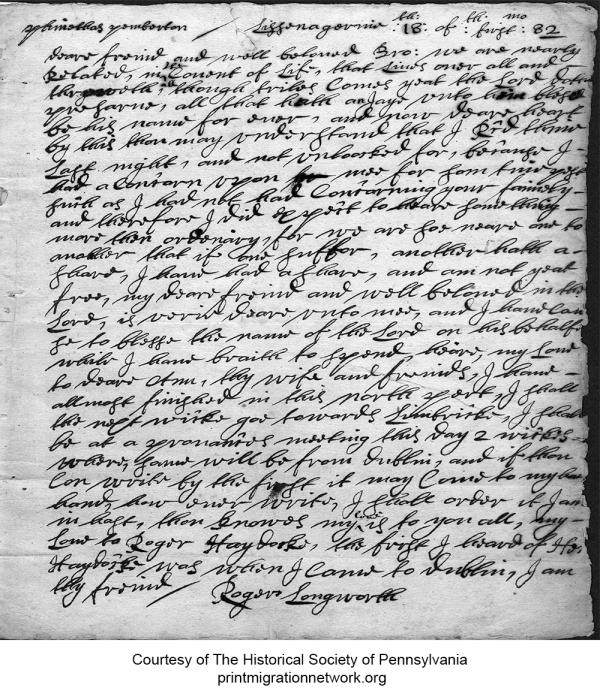 phinehas pemberton / Lissenagernie 18th: of: first: mo 82
deare freind and well beloved Bro: we are nearly
Related, in the Covent of Life, that Lives over all and
through though triles Comes yeat the Lord doth
preserve, all that hath an Eaye unto him blessed
be his name for ever, and now deare heart
by this thou may understand that I Rd thine
Last night, and not unlooked for, because I
had a Concern upon mee for som time yeat
such as I had not had Concerning your family
and therefore I did expect to heare something
more then ordenary, for we are soe neare one to
another that if one suffer, another hath a
share, I have had a share, and am not yeat
free, my deare freind and well beloved in the
Lord, is verie deare unto mee, and I have Cau
se to blesse the name of the Lord on his behalfe
while I have braith to spend, heire, my Love
to deare Ann, thy wife and freinds, I have
allmost finished in this north pert, I shall
the next wicke goe towards Limbricke, I shall
be at a provances meeting this day 2 wickes
where, some will be from dublin, and if thou
Con write by the first it may Come to my
hand, how ever write, I shall order it I am
in hast, thou knowes my is to you all, my
Love to Roger Haydocke, the first I heard of
Haydocke was when I Came to dublin, I am
thy freind / Roger Longworth
Courtesy of The Historical Society of Pennsylvania
printmigrationnetwork.org